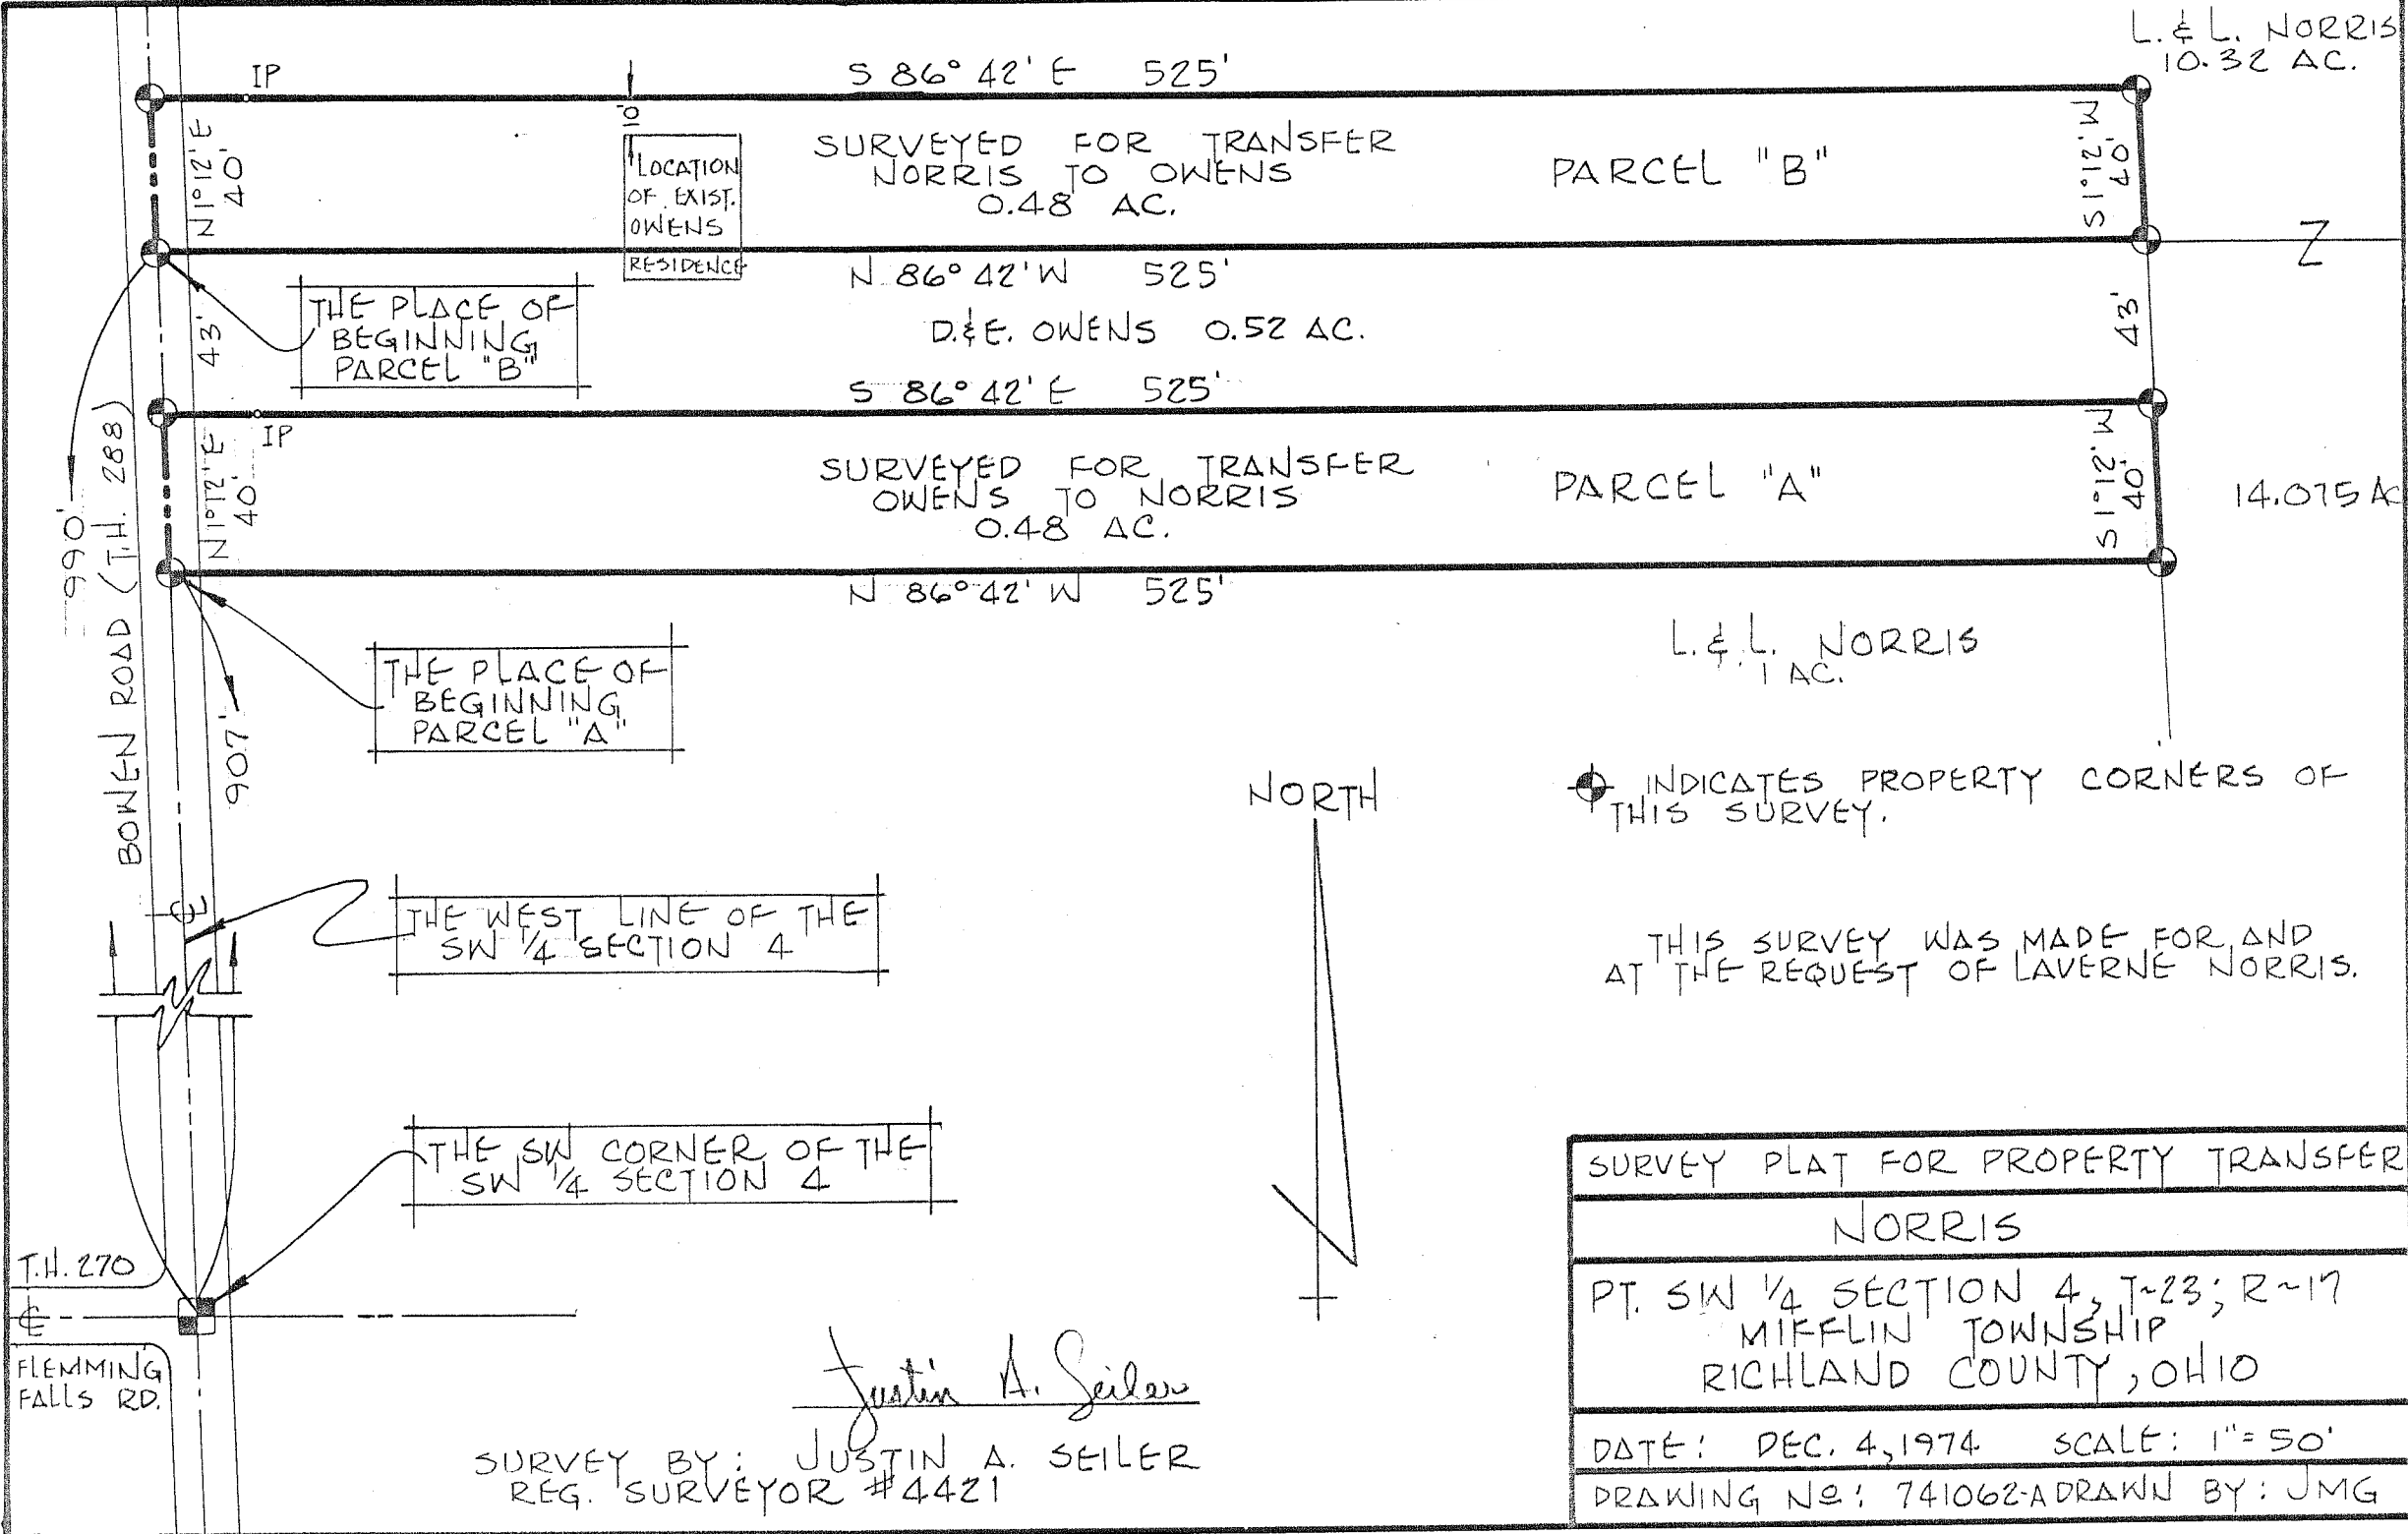 L. & L. NORRIS
10.32 AC.
S 86° 42' E 525'
IP
10'
N 1° 12' E
40'
LOCATION
OF EXIST.
OWENS
RESIDENCE
SURVEYED FOR TRANSFER
NORRIS TO OWENS
0.48 AC.
PARCEL "B"
S 1° 12' W
40'
Z
N 86° 42' W 525'
THE PLACE OF
BEGINNING
PARCEL "B"
43'
D. & E. OWENS 0.52 AC.
43'
S 86° 42' E 525'
IP
N 1° 12' E
40'
SURVEYED FOR TRANSFER
OWENS TO NORRIS
0.48 AC.
PARCEL "A"
S 1° 12' W
40'
14.075 AC
990'
BOWEN ROAD (T.H. 288)
N 86° 42' W 525'
L. & L. NORRIS
1 AC.
THE PLACE OF
BEGINNING
PARCEL "A"
907'
NORTH
INDICATES PROPERTY CORNERS OF
THIS SURVEY.
℄
THE WEST LINE OF THE
SW 1/4 SECTION 4
THIS SURVEY WAS MADE FOR AND
AT THE REQUEST OF LAVERNE NORRIS.
THE SW CORNER OF THE
SW 1/4 SECTION 4
T.H. 270
℄
FLEMMING
FALLS RD.
Justin A. Seiler
SURVEY BY: JUSTIN A. SEILER
REG. SURVEYOR #4421
SURVEY PLAT FOR PROPERTY TRANSFER
NORRIS
PT. SW 1/4 SECTION 4, T~23; R~17
MIFFLIN TOWNSHIP
RICHLAND COUNTY, OHIO
DATE: DEC. 4, 1974 SCALE: 1" = 50'
DRAWING No: 741062-A DRAWN BY: JMG